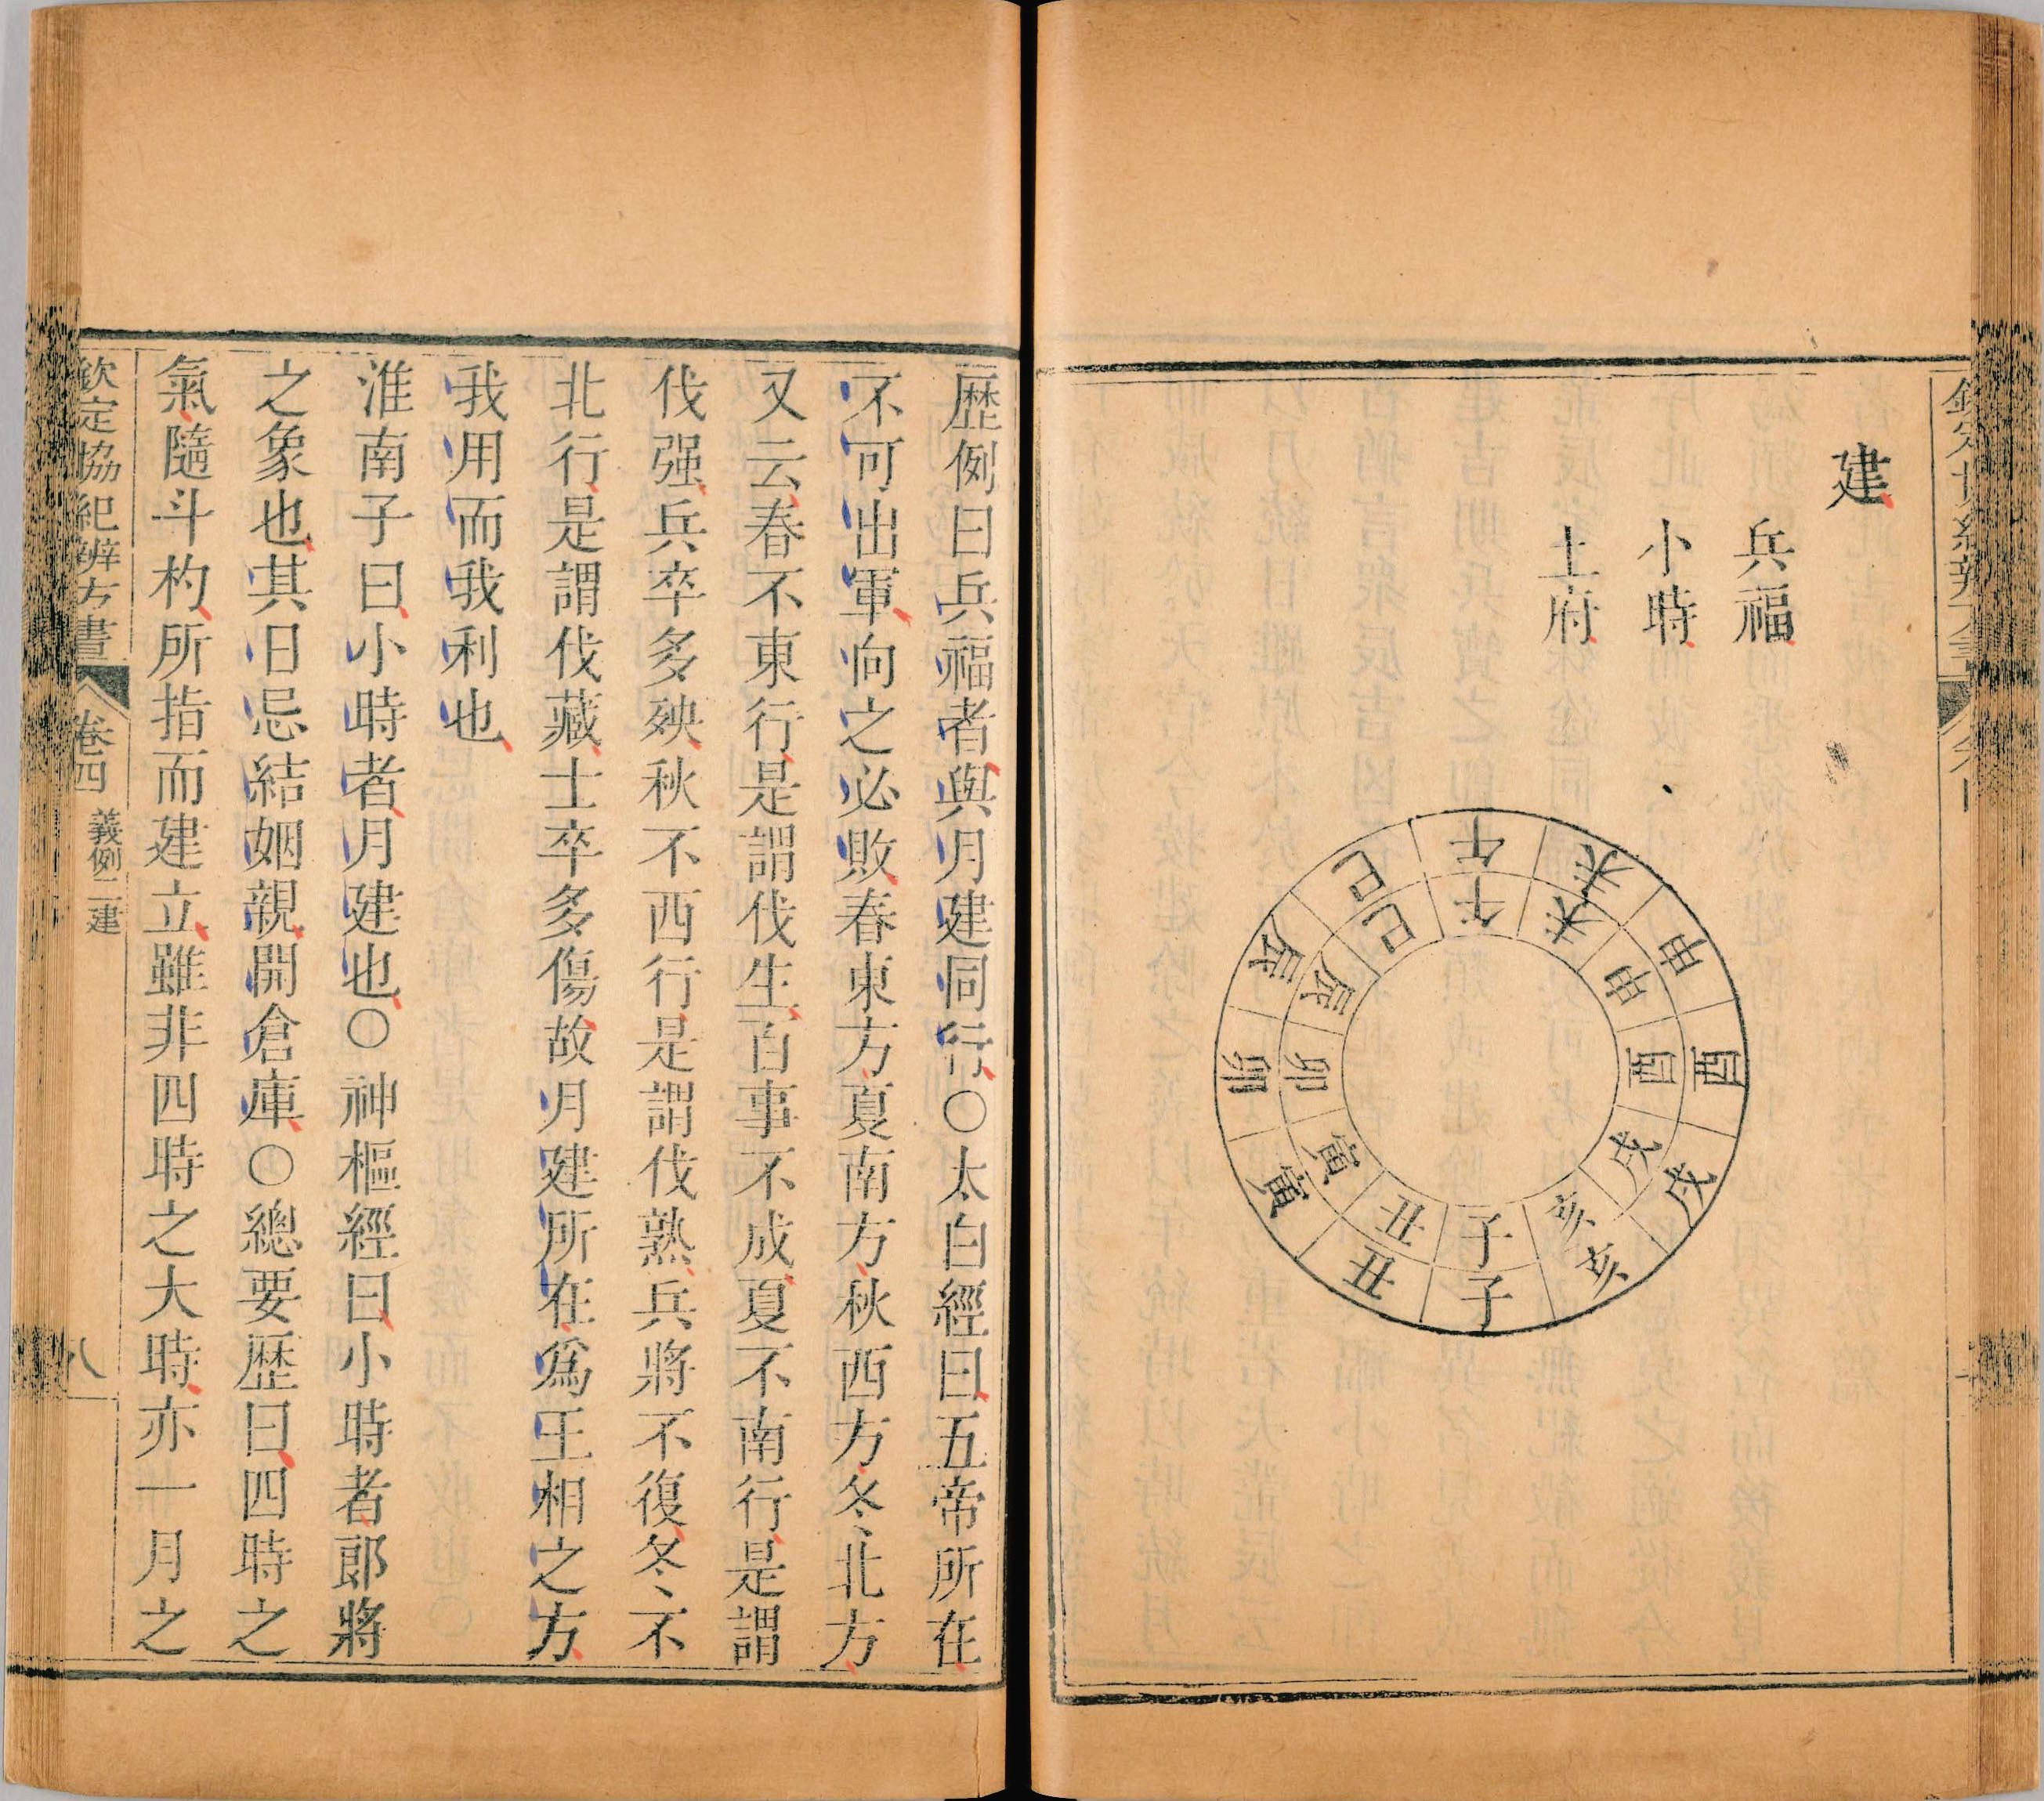 建
兵福
小時
土府
午
未
申
酉
戌
亥
子
丑
寅
卯
辰
巳
午
未
申
酉
戌
亥
子
丑
寅
卯
辰
巳
歷例曰兵福者與月建同行○太白經曰五帝所在
不可出軍向之必敗春東方夏南方秋西方冬北方
又云春不東行是謂伐生百事不成夏不南行是謂
伐强兵卒多殃秋不西行是謂伐熟兵將不復冬不
北行是謂伐藏士卒多傷故月建所在爲王相之方
我用而我利也
淮南子曰小時者月建也○神樞經曰小時者郎將
之象也其日忌結姻親開倉庫○總要歷曰四時之
氣隨斗杓所指而建立雖非四時之大時亦一月之
欽定協紀辨方書 卷四 義例二建 八